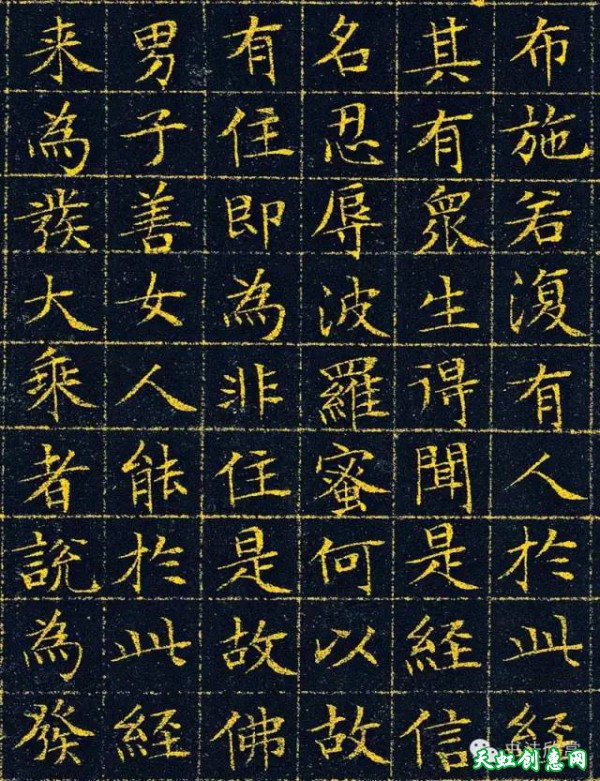 布施若復有人於此経
其有眾生得聞是経信
名忍辱波羅蜜何以故
有住即為非住是故佛
男子善女人能於此経
来為發大乘者說為發
天虹创意网